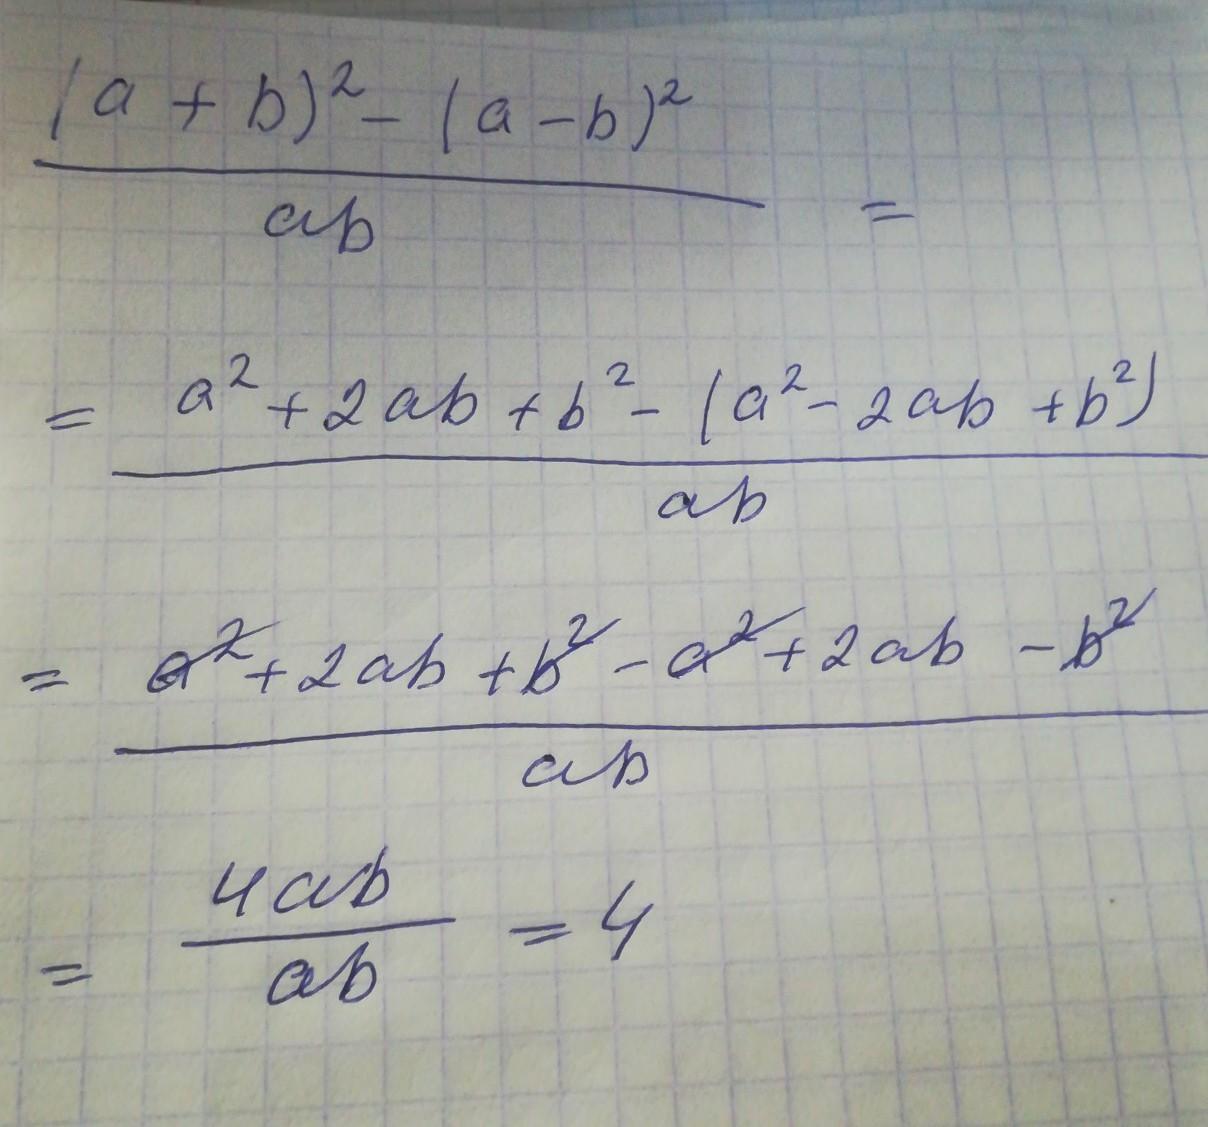 (a + b)² - (a - b)²
ab
=
= a² + 2ab + b² - (a² - 2ab + b²)
ab
= a² + 2ab + b² - a² + 2ab - b²
ab
= 4ab
ab
= 4